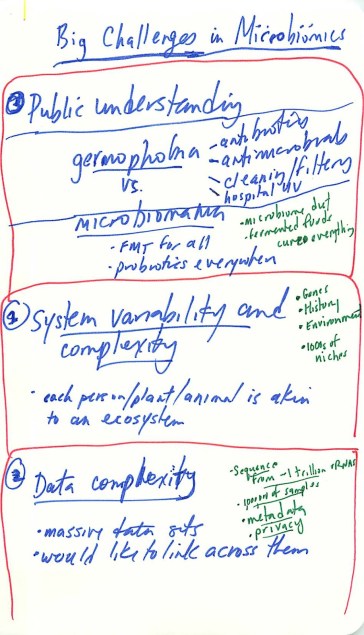 Big Challenges in Microbiomics
③ Public understanding
germophobia
vs.
- antibiotics
- antimicrobials
- cleaning/filters
- hospital UV
microbiomania
• FMT for all
• probiotics everywhere
• microbiome diet
• fermented foods
cures everything
① System variability and
complexity
• Genes
• History
• Environment
• 100s of
niches
• each person/plant/animal is akin
to an ecosystem
② Data complexity
• Sequence
From ~1 trillion
• 1000s of samples
• metadata
• privacy
• massive data sets
• would like to link across them